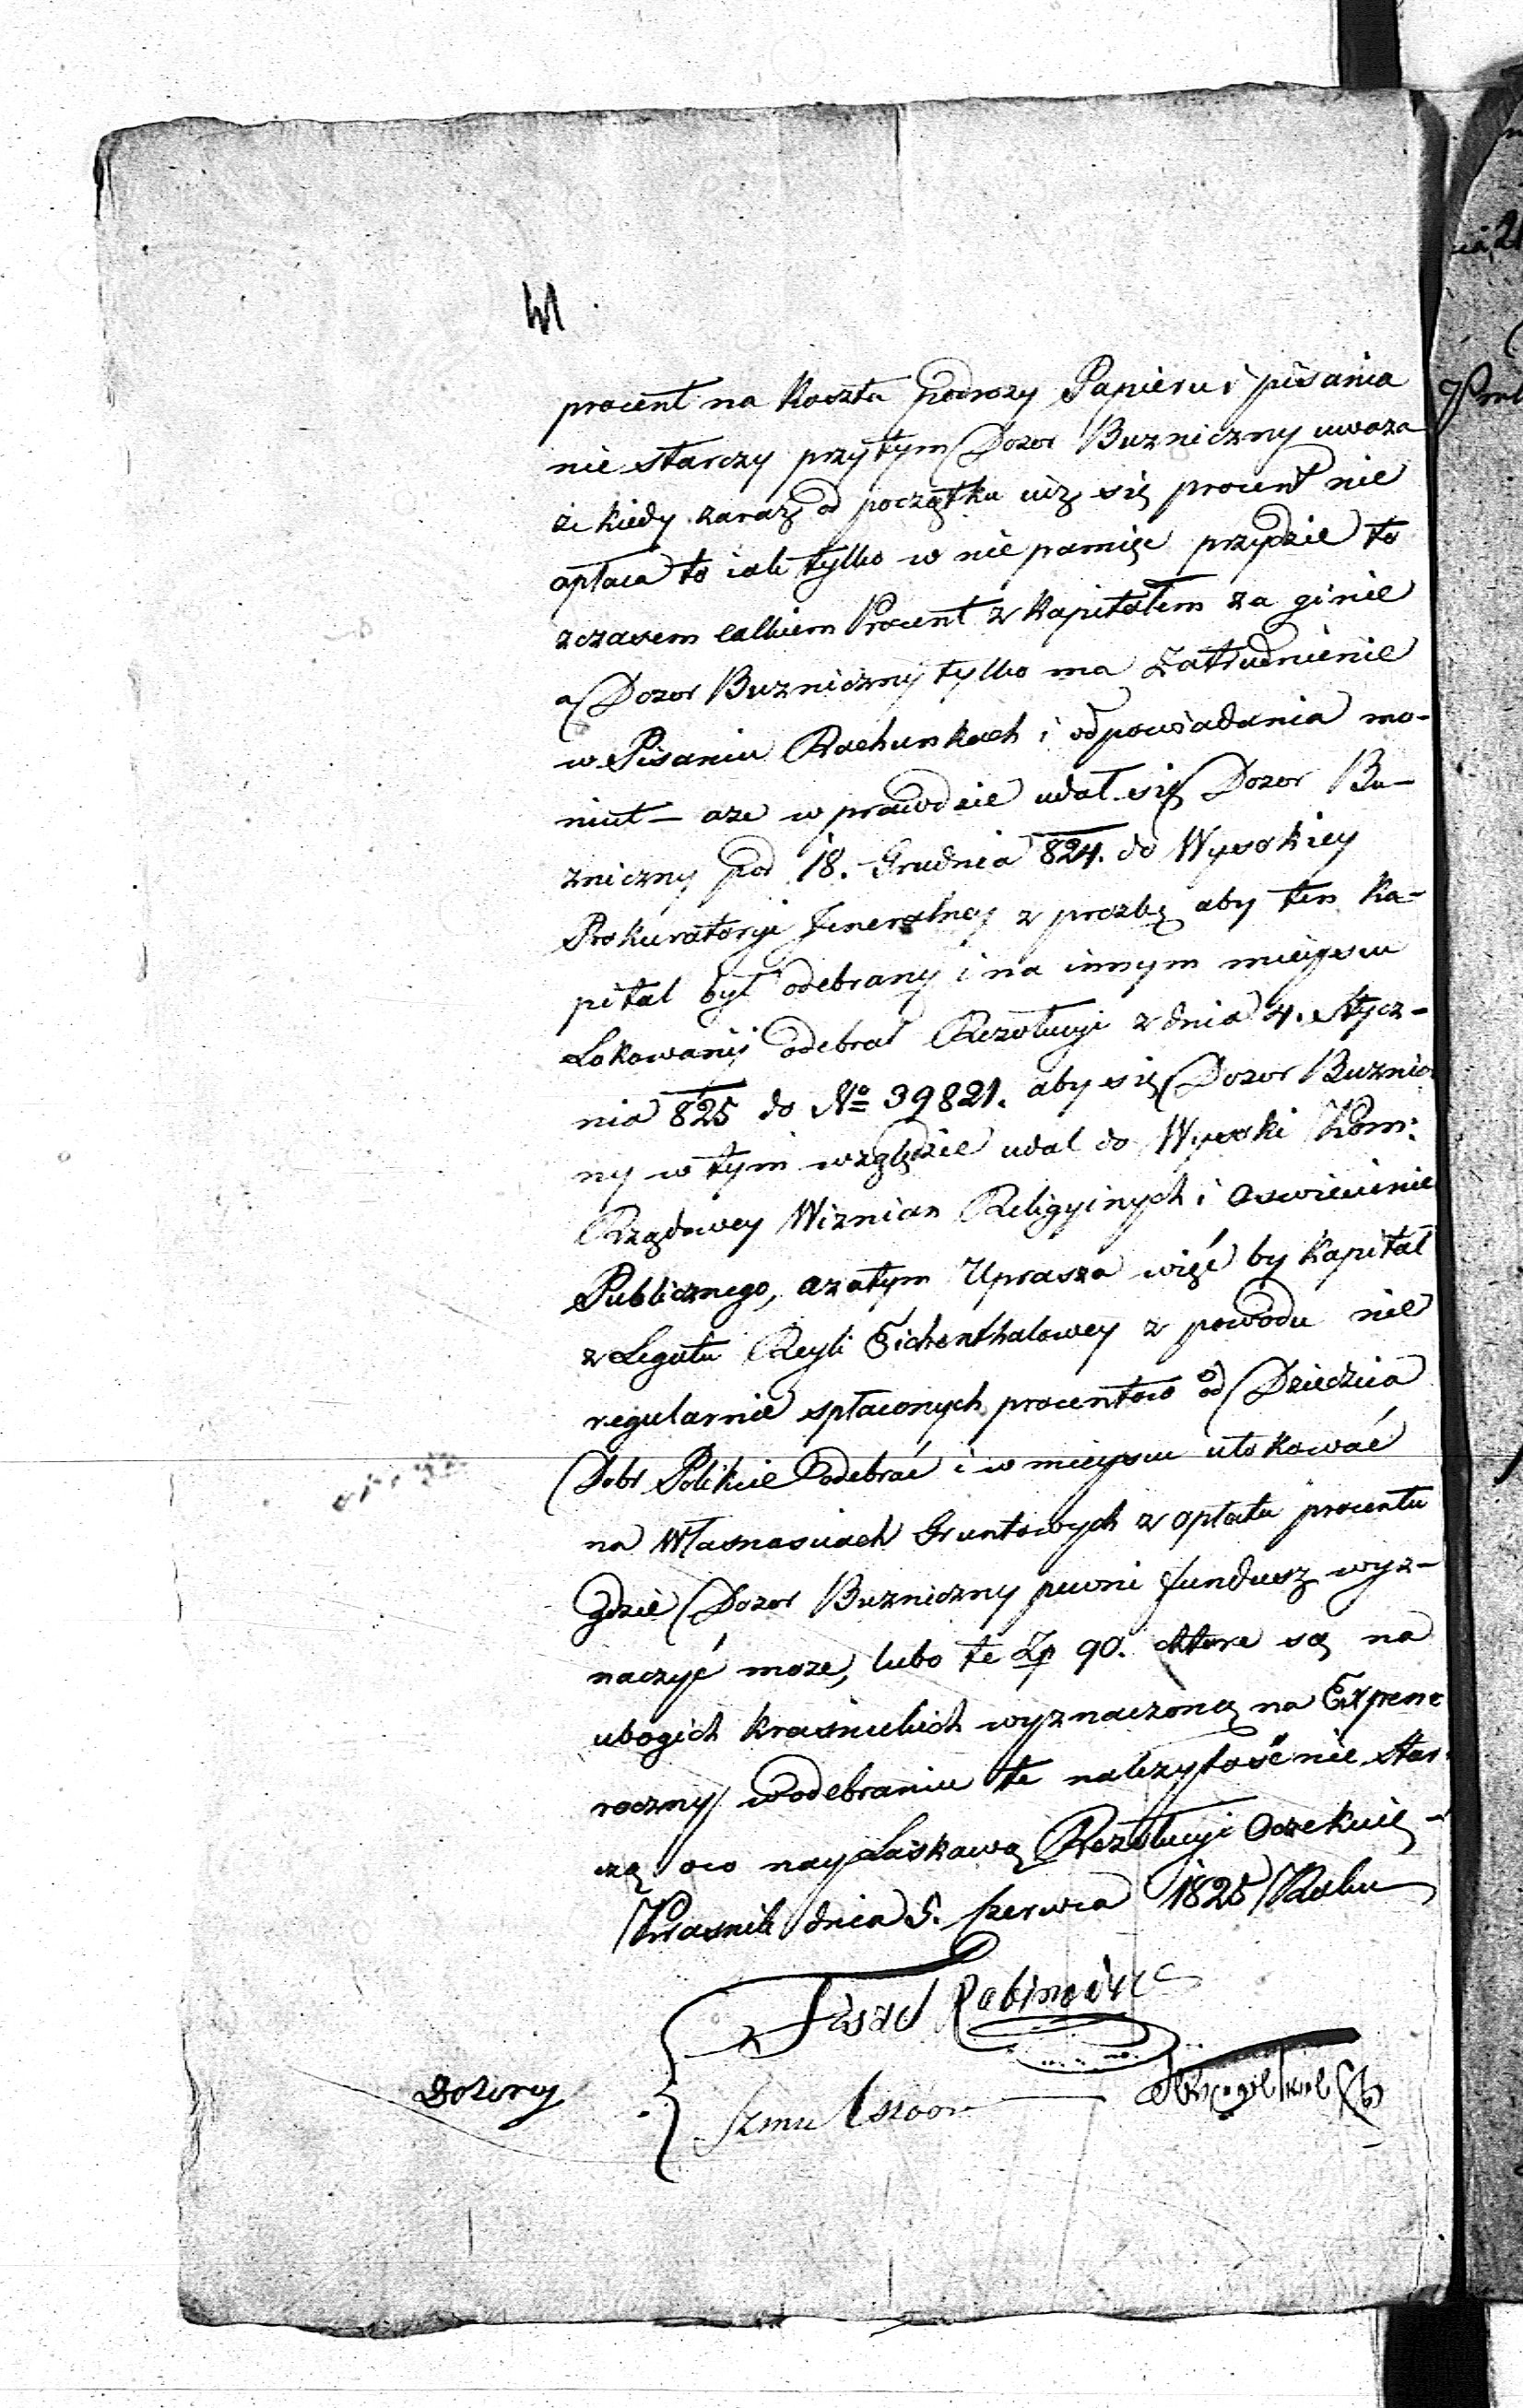 procent na koszta podrozy Papieru i pisania
nie starczy przytym Dozor Buzniczny uwaza
że kiedy zaraz od początku iuz się procent nie
opłaca to iak tylko w nie pamięc przydzie to
zczasem całkiem Procent z kapitałem za ginie
a Dozor Buzniczny tylko ma Zatrudnienie
w Pisaniu Rachunkach i odpowiadania mo-
niut – aze w prawdzie udał się Dozor Bu-
zniczny pod 18. Grudnia 824. do Wysokiey
Prokuratoryi Jeneralney z prozbą aby ten Ka-
pitał był odebrany i na innym mieyscu
Lokowany odebrał Rezolucyi z dnia 4. Stycz-
nia 825 do No 39821. aby się Dozor Buznicz
ny w tym względzie udał do Wysoki Kom:
Rządowey Wiznian Religyinych i Oswiecinie
Publicznego, azatym Uprasza więc by kapitał
z Legatu Reyli Eichenthalowey z powodu nie
regularnie spłaconych procentow od Dziedzica
Dobr Polikie odebrać i w mieyscu ulokować
na Własnosciach Gruntowych z opłatu procentu
gdzie Dozor Buzniczny pewni fundusz wyz-
naczyć moze, lubo te Zp 90. ktore są na
ubogich krasnickich wyznaczoną na Expens
roczny w odebraniu te nalezytośc nie star-
czą oco nay Łaskawą Rezolucyi Oczekuię –
Krasnik dnia 5. Czerwca 1825 Roku
Rabinowicz
Dozorcy
Szmul